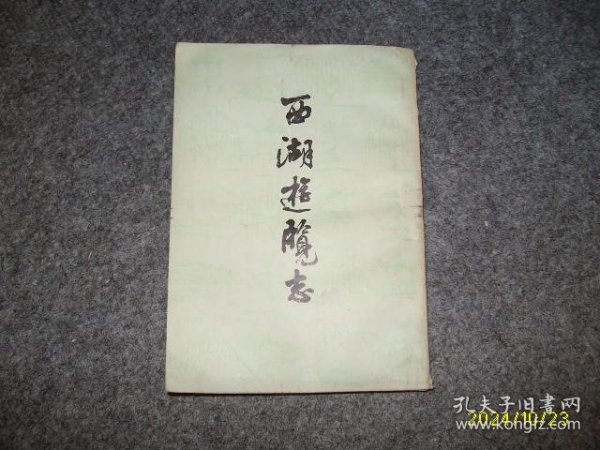 西湖遊覽志
孔夫子旧书网
www.kongfz.com
2024/10/23